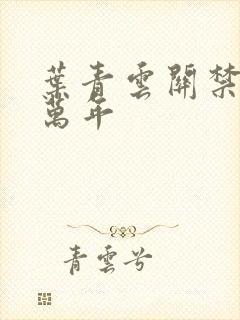 葉青雲關禁
萬年
青雲兮